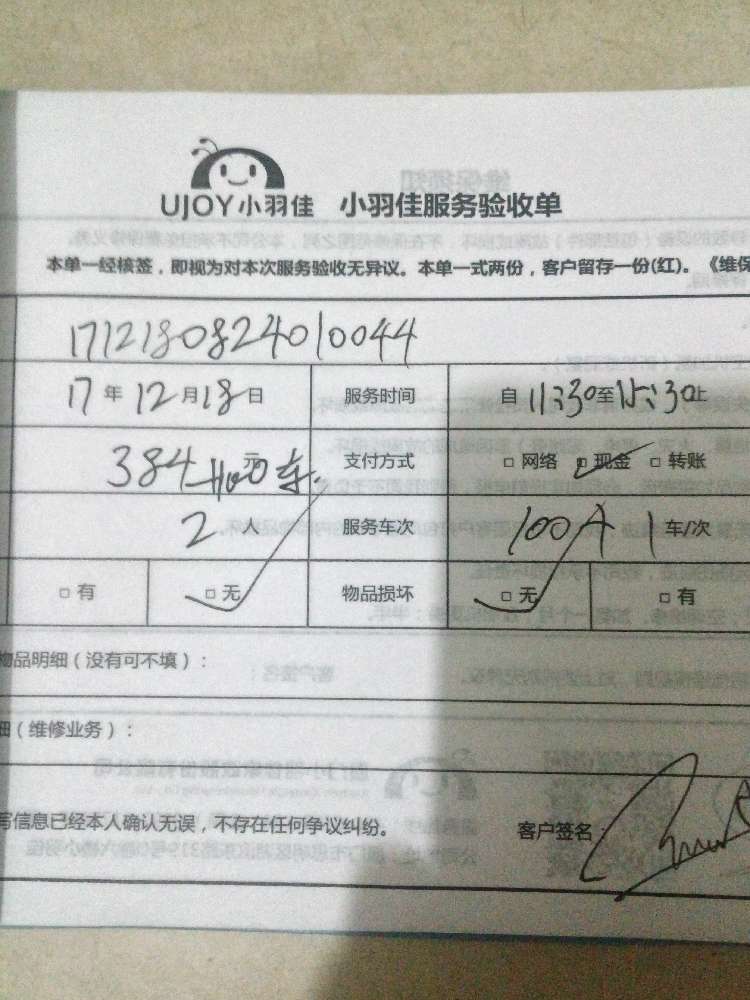 UJOY小羽佳 小羽佳服务验收单
本单一经核签，即视为对本次服务验收无异议。本单一式两份，客户留存一份(红)。《维保
1712180824010044
17年12月18日 服务时间 自11:30至15:30止
384元 支付方式 □网络 □现金 □转账
2 服务车次 100 1车/次
□有 □无 物品损坏 □无 □有
物品明细（没有可不填）：
细（维修业务）：
写信息已经本人确认无误，不存在任何争议纠纷。 客户签名：